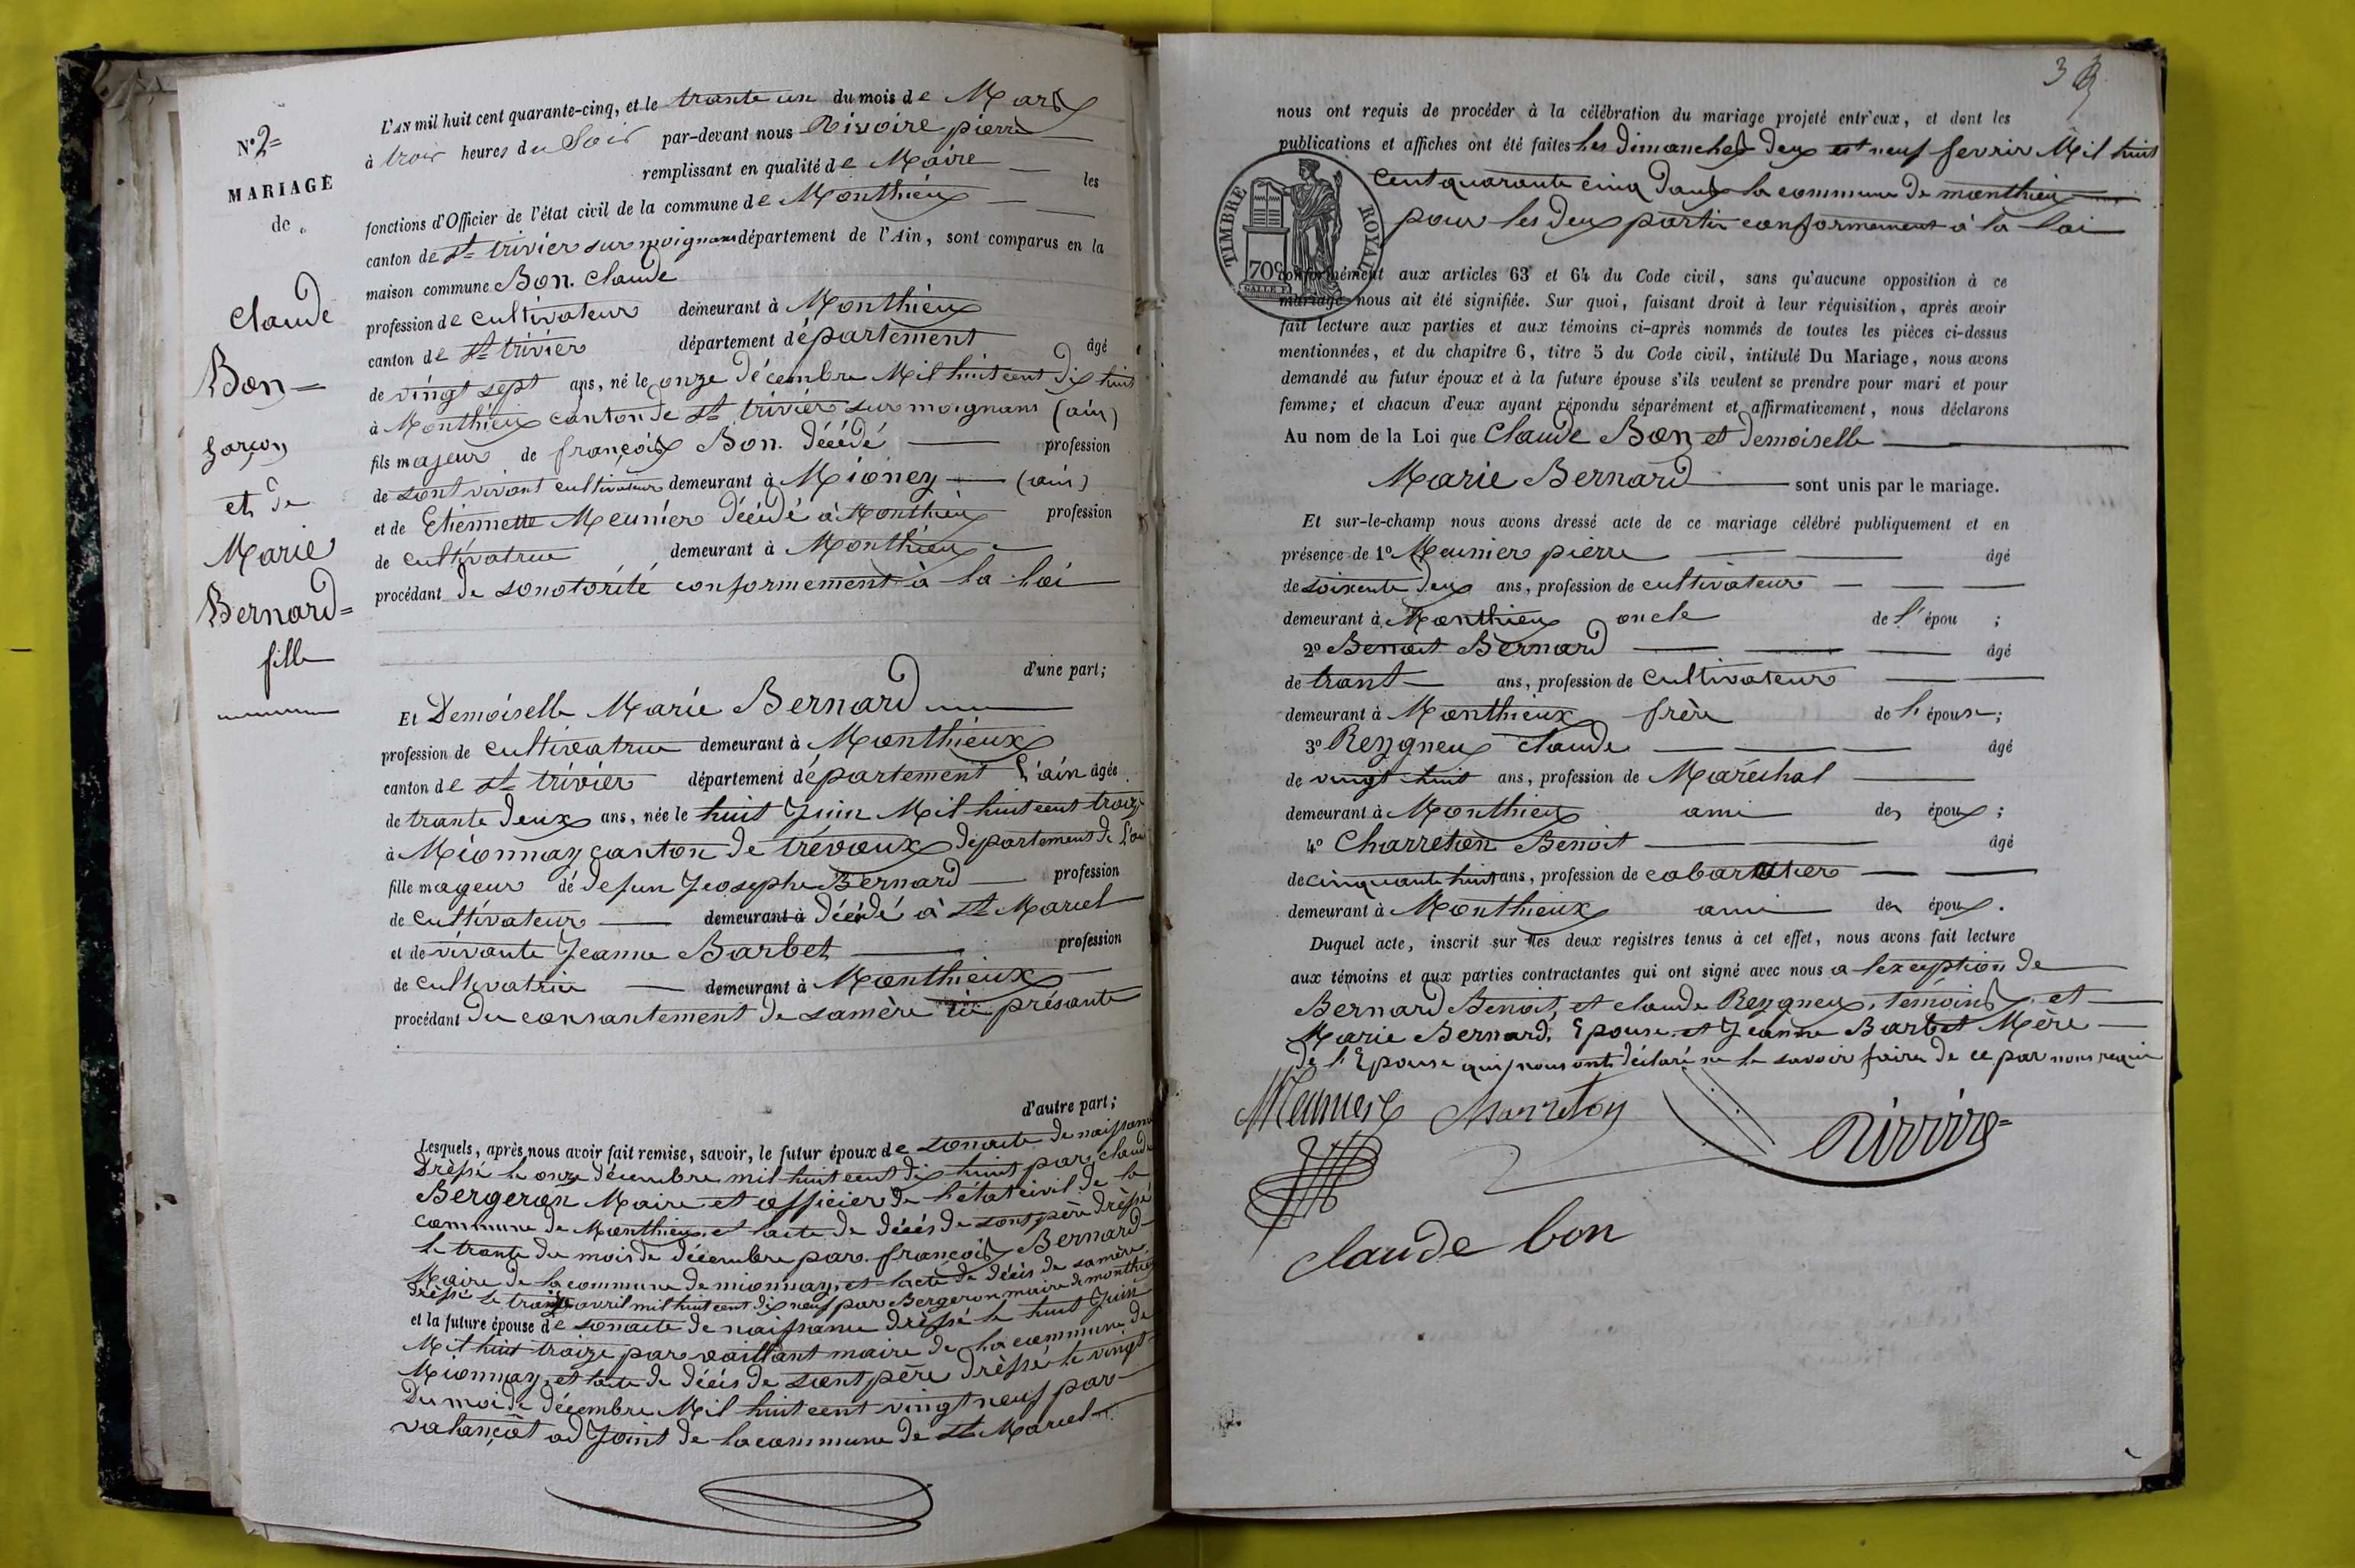 N° 2=
MARIAGE
de
Claude
Bon=
garçon
et de
Marie
Bernard=
fille
L'AN mil huit cent quarante-cinq, et le trante un du mois de Mars
à trois heures du Soir par-devant nous Rivoire pierre
remplissant en qualité de Maire les
fonctions d'Officier de l'état civil de la commune de Monthieux
canton de St trivier sur moignans département de l'Ain, sont comparus en la
maison commune Bon. Claude
profession de cultivateur demeurant à Monthieux
canton de St trivier département département âgé
de vingt sept ans, né le onze décembre Mil huit cent dix huit
à Monthieux canton de St trivier sur moignans (ain)
fils majeur de françois Bon. décédé profession
de sont vivant cultivateur demeurant à Mioney (ain)
et de Etiennette Meunier décédé à Monthieux profession
de cultivatrice demeurant à Monthieux
procédant de sonotorité conformement à la loi
d'une part;
Et Demoiselle Marie Bernard
profession de cultivatrice demeurant à Monthieux
canton de St trivier département département l'ain âgée
de trante deux ans, née le huit Juin Mil huit cent traize
à Mionnay canton de trévoux département de l'ain
fille mageur de defun Jeosephe Bernard profession
de cultivateur demeurant à décédé à St Marcel
et de vivante Jeanne Barbet profession
de cultivatrice demeurant à Monthieux
procédant du consantement de samère ici présante
d'autre part;
Lesquels, après nous avoir fait remise, savoir, le futur époux de sonacte de naissance
drèssé le onze décembre mil huit cent dix huit par claude
Bergeron Maire et officier de l'état civil de la
commune de Monthieux et lacte de décés de sont père drèssé
le trante du mois de décembre par françois Bernard
Maire de la commune de mionnay, et lacte de décès de samère
drèssé le avril mil huit cent dix neuf par Bergeron maire de monthieux
et la future épouse de sonacte de naissance drèssé le huit Juin
Mil huit traize par vaillant maire de la commune de
Mionnay, et lacte de décès de sont père drèssé le vingt
Du moi de décembre Mil huit cent vingt neuf par
valançot adJoint de la commune de St Marcel
nous ont requis de procéder à la célébration du mariage projeté entr'eux, et dont les
publications et affiches ont été faites les dimanches deux et neuf fevrir Mil huit
Cent quarante cinq dans la commune de monthieux
pour les deux partir conformement à la loi
TIMBRE ROYAL
70c
conformément aux articles 63 et 64 du Code civil, sans qu'aucune opposition à ce
mariage nous ait été signifiée. Sur quoi, faisant droit à leur réquisition, après avoir
fait lecture aux parties et aux témoins ci-après nommés de toutes les pièces ci-dessus
mentionnées, et du chapitre 6, titre 5 du Code civil, intitulé Du Mariage, nous avons
demandé au futur époux et à la future épouse s'ils veulent se prendre pour mari et pour
femme; et chacun d'eux ayant répondu séparément et affirmativement, nous déclarons
Au nom de la Loi que Claude Bon et demoiselle
Marie Bernard sont unis par le mariage.
Et sur-le-champ nous avons dressé acte de ce mariage célébré publiquement et en
présence de 1° Meunier pierre âgé
de soixente deux ans, profession de cultivateur
demeurant à Monthieux oncle de l'épou ;
2° Benoit Bernard âgé
de trant ans, profession de cultivateur
demeurant à Monthieux frère de l'épouse;
3° Reygneux claude âgé
de vingt huit ans, profession de Maréshal
demeurant à Monthieux ami des époux;
4° Charreton Benoit âgé
de cinquante huit ans, profession de cabaratier
demeurant à Monthieux ami des époux.
Duquel acte, inscrit sur les deux registres tenus à cet effet, nous avons fait lecture
aux témoins et aux parties contractantes qui ont signé avec nous a lexception de
Bernard Benoit, et claude Reygneux, témoins, et
Marie Bernard, Epouse, et Jeanne Barbet Mère
de l'Epouse qui nous ont déclaré ne le savoir faire de ce par nous requi
Meunier Charreton
Rivoire=
claude bon